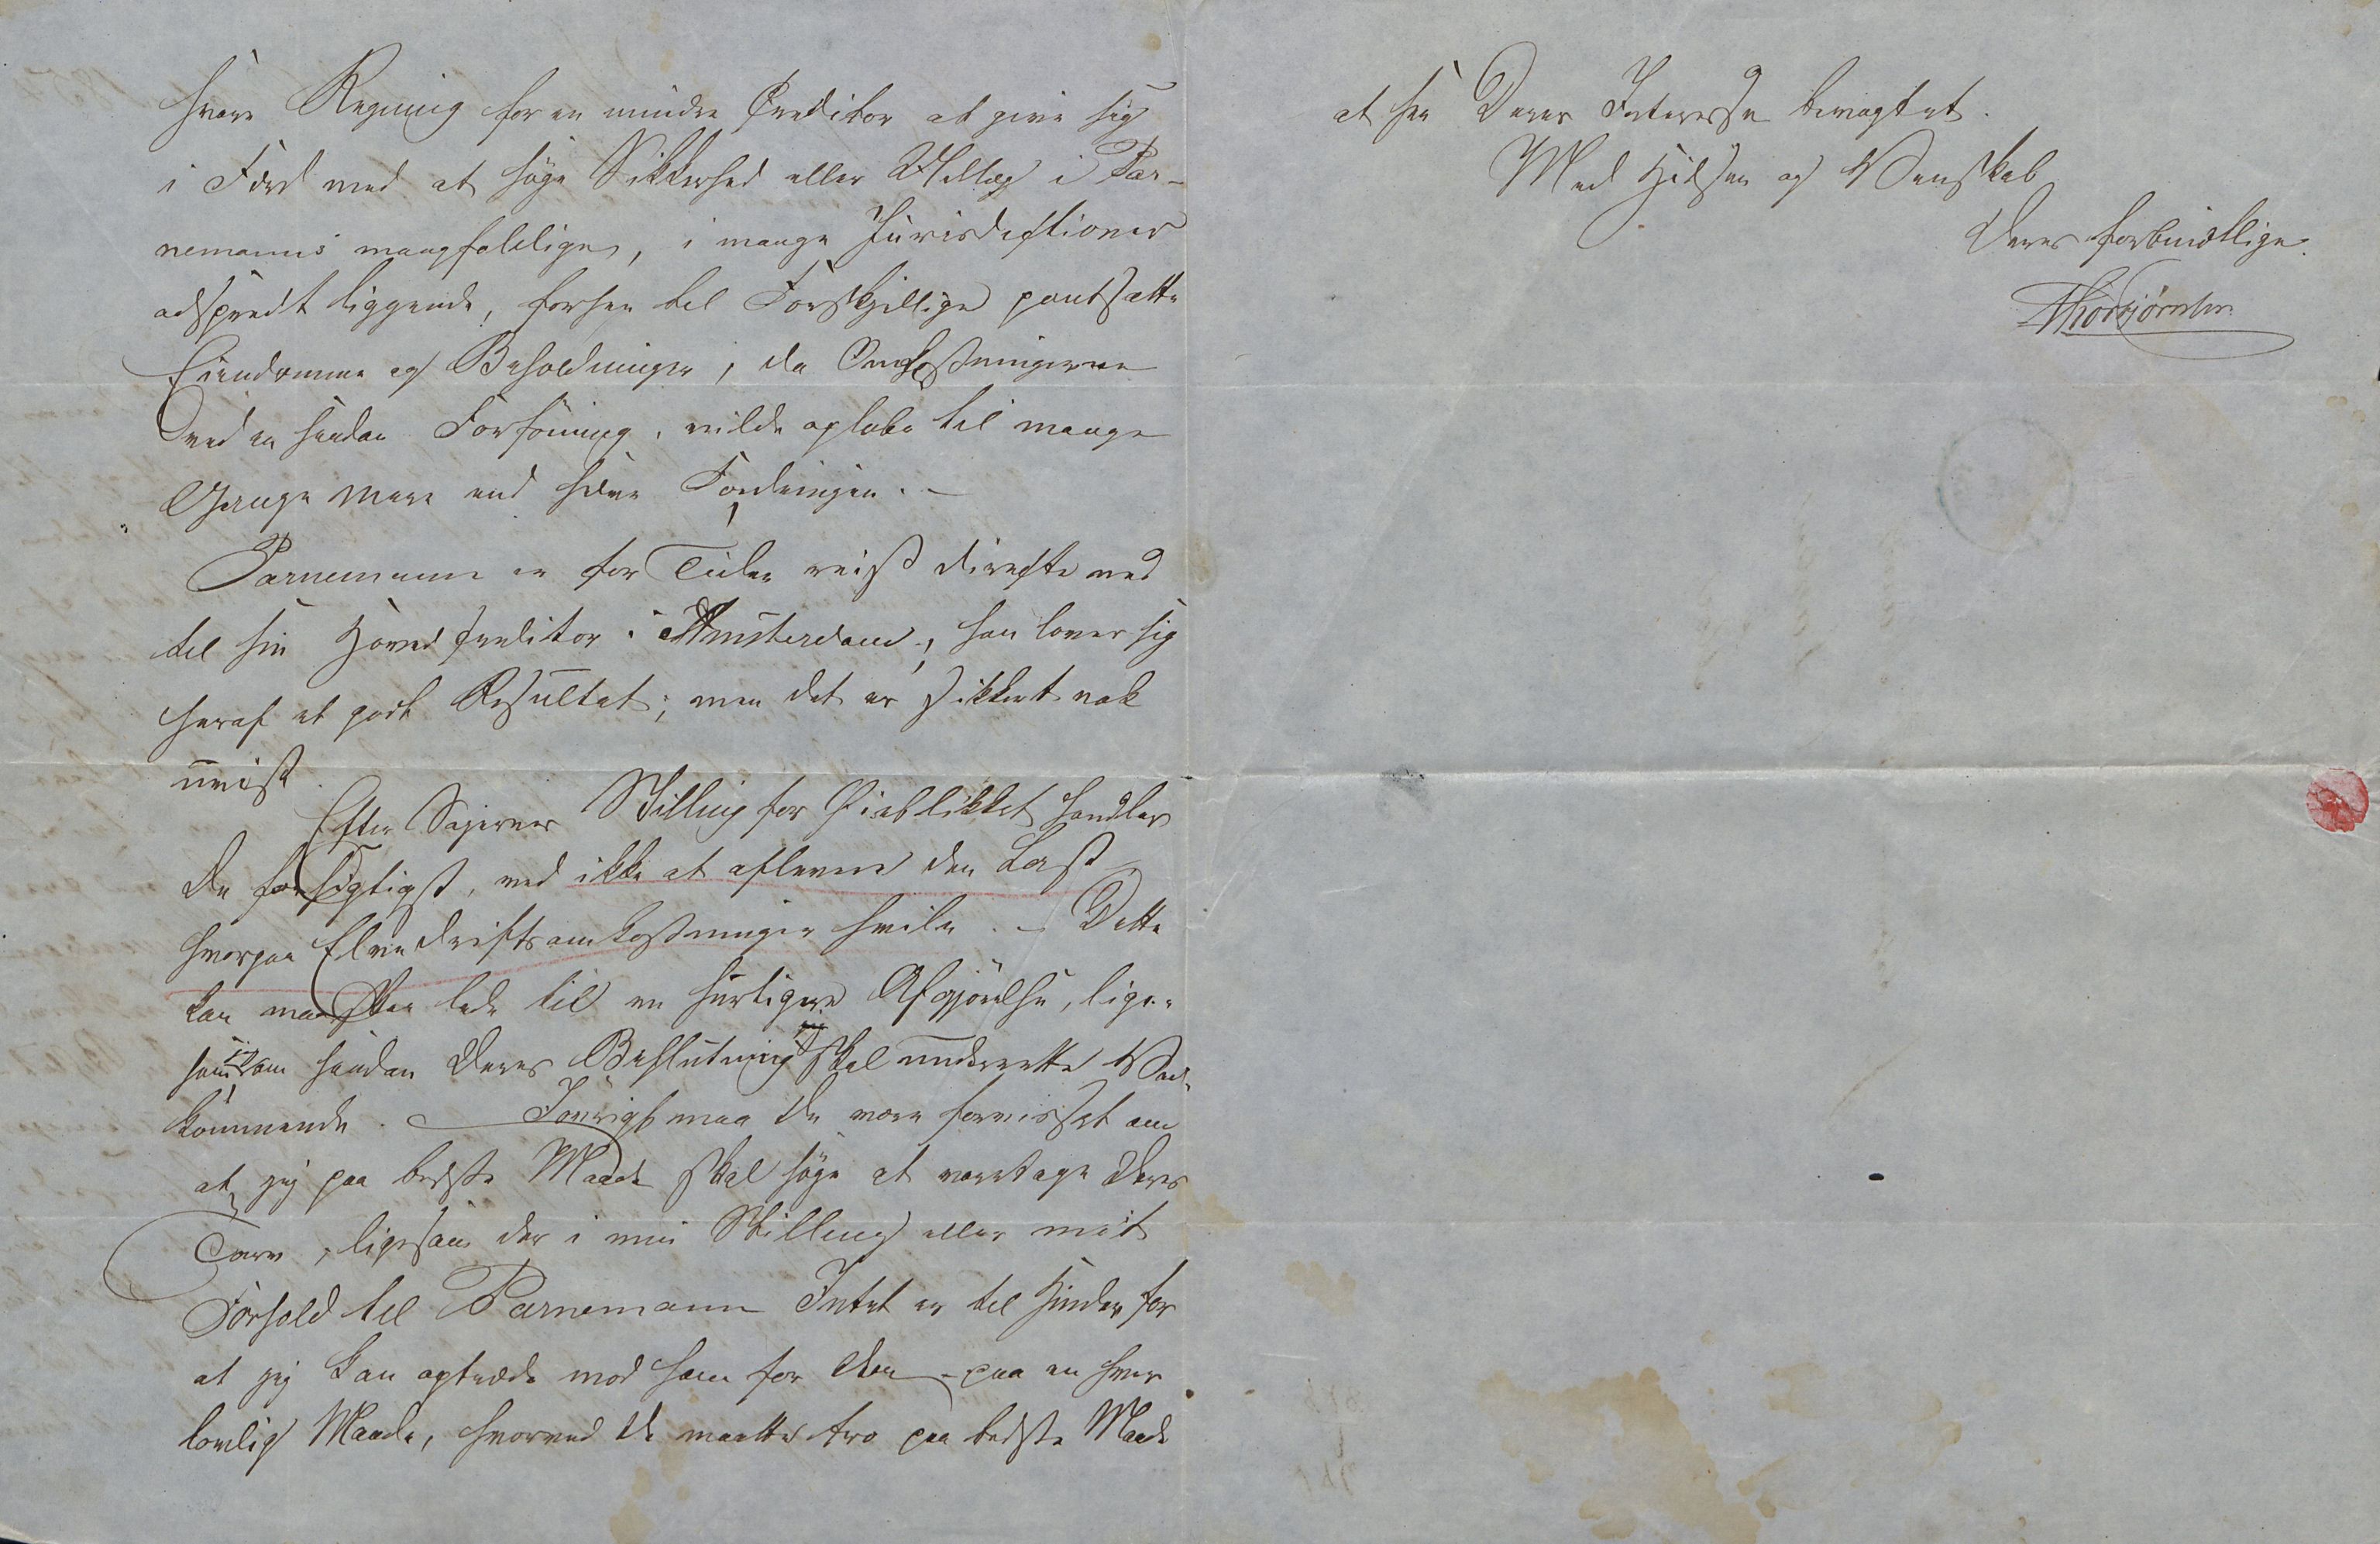 svare Regning for en mindre Creditor at give sig
i Færd med at søge Sikkerhed eller Udlæg i Par-
nemanns mangfoldige, i mange Jurisdictioner
adspredt liggende, forhen til Forskjellige pantsatte
Eiendomme og Beholdninger, da Omkostningerne
ved en saadan Forføining, vilde opløbe til mange
Gange mere end selve Fordringen. –
Parnemann er for Tiden reist directe ned
til sin Hovedcreditor i Amsterdam; han lover sig
heraf et godt Resultat; men det er sikkert nok
uvist.
Efter Sagernes Stilling for Øieblikket handler
De forsigtigst, ved ikke at aflevere den Last
hvorpaa Elvedriftsomkostninger hvile. – Dette
kan maaskee lede til en hurtigere Afgjørelse, lige-
som om saadan Deres Beslutning jeg skal underrette Ved-
kommende. – Iøvrigt maa De være forvisset om
at jeg paa bedste Maade skal søge at varetage Deres
Tarv, ligesom der i min Stilling eller mit
Forhold til Parnemann Intet er til Hinder for
at jeg kan optræde mod ham for Dem paa en hver
lovlig Maade, hvorved De maatte tro paa bedste Maade
at see Deres Interesse bevogtet.
Med Hilsen og Venskab
Deres forbindtlige
Thorbjørnsen